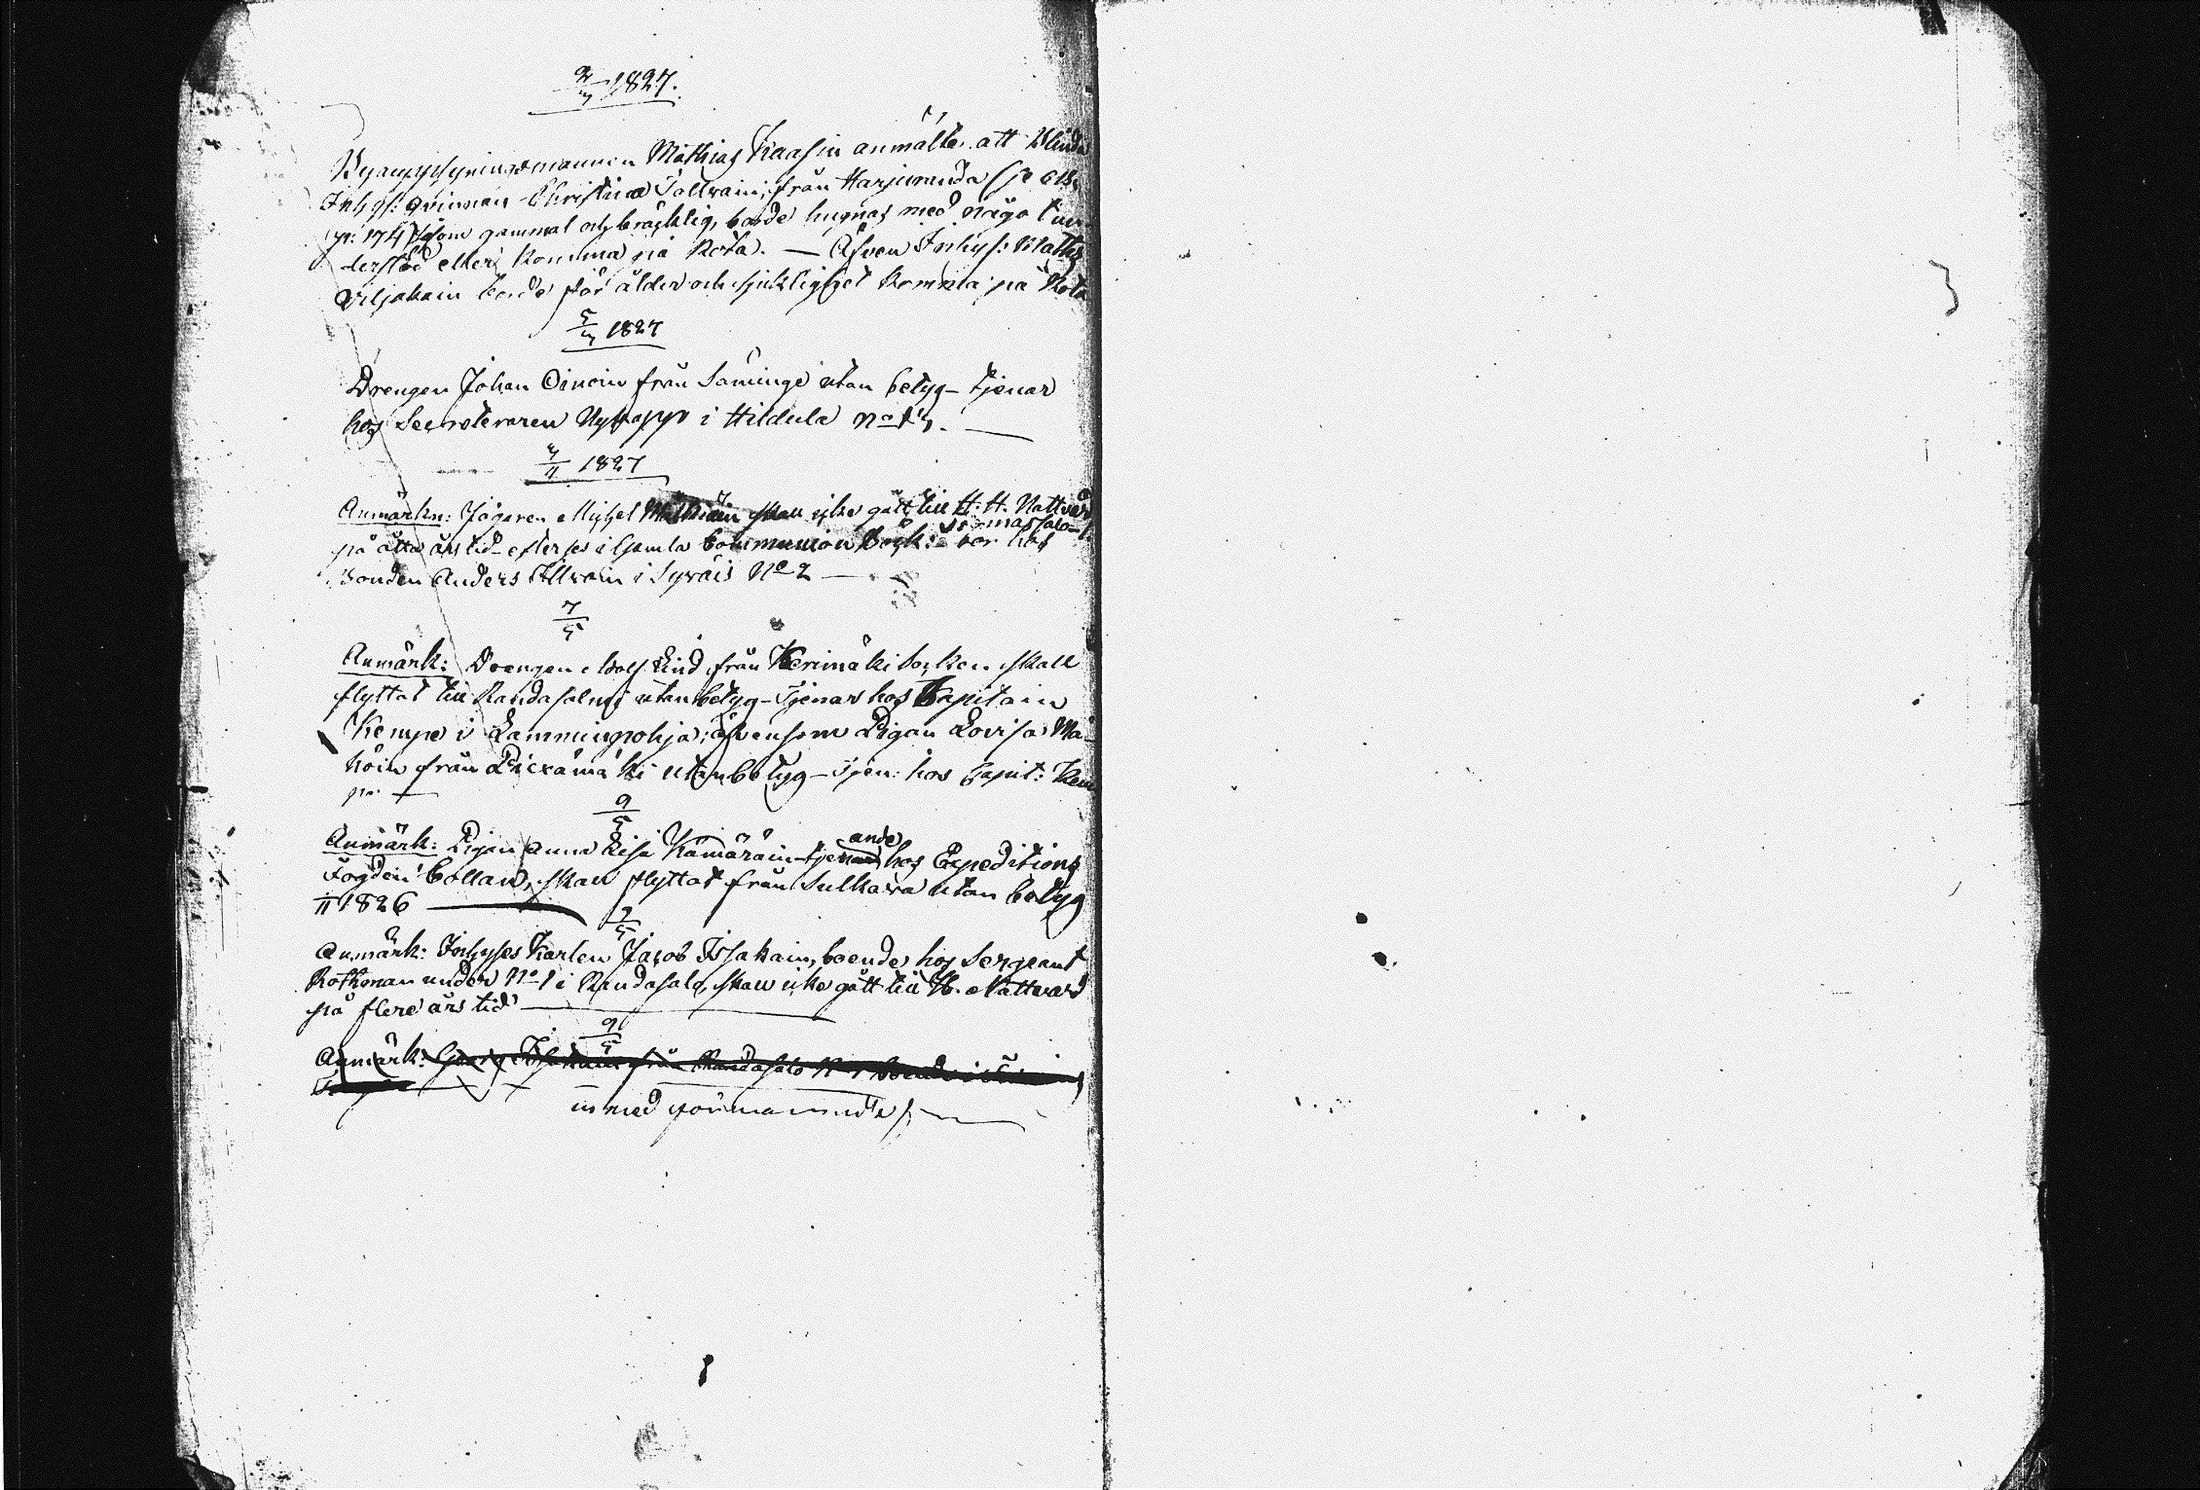 1827.
Byauppsyningsmannen Mathias Kaasin anmälte, att Blinda
Inhys: qvinnan Christina Tollvain, från Harjuranda
som gammal och bräcklig, borde hugnas med någo t un
derstöd eller komma på Rota. — Äfven Inhys: Maths
Viljakain borde för ålder och sjuklighet komma på Rota
5/3 1827
Drengen Johan Oinoin från Säminge utan betyg – tjenar
hos Secreteraren i Hildula No
1827
Anmärkn: Jägaren Michel skall icke gått till H. H. Nattvard
på åtta års tid – efterses i Gamla Communion Bok: – bor hos
Bonden Anders i Syväis No 2 —
7/5
Anmärk: Drengen Adolf Lind från Kerimäki Socken skall
flyttat till Randasalmi utan betyg – Tjenar hos Capitain
Kempe i Lamminpohja; äfvensom Pigan Lovisa Ma-
höin från Piexämäki utan betyg – Tjen: hos Capit: Kem
pe —
9/5
Anmärk: Pigan Anna Lisa Kämäräin – tjenande hos Expeditions
Fogden Collan, skall flyttat från Sulkava utan betyg
1826 —
9/5
Anmärk: Inhyses Karlen Jacob Issakain, boende hos Sergeant
Rothman under No 1 i Randasalo, skall icke gått till H. Nattvard
på flere års tid —
9/5
Anmärk: från Randasalo No
med